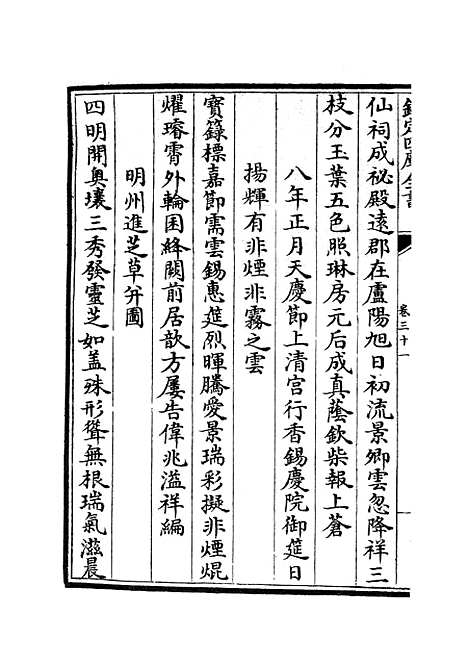 欽定四庫全書
卷三十一
仙祠成祕殿遠郡在盧陽旭日初流景卿雲忽降祥三
枝分玉葉五色照琳房元后成真蔭欽柴報上蒼
八年正月天慶節上清宮行香錫慶院御筵日
揚輝有非煙非霧之雲
寳籙標嘉節需雲錫惠筵烈暉騰愛景瑞彩擬非煙焜
燿璿霄外輪囷絳闕前居歆方屢告偉兆溢祥編
明州進芝草并圖
四明開奥壤三秀發靈芝如盖殊形聳無根瑞氣滋晨